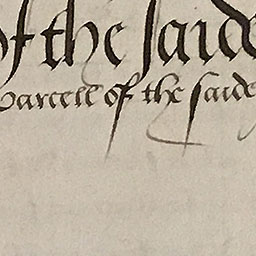 of the saide
parcell of the saide